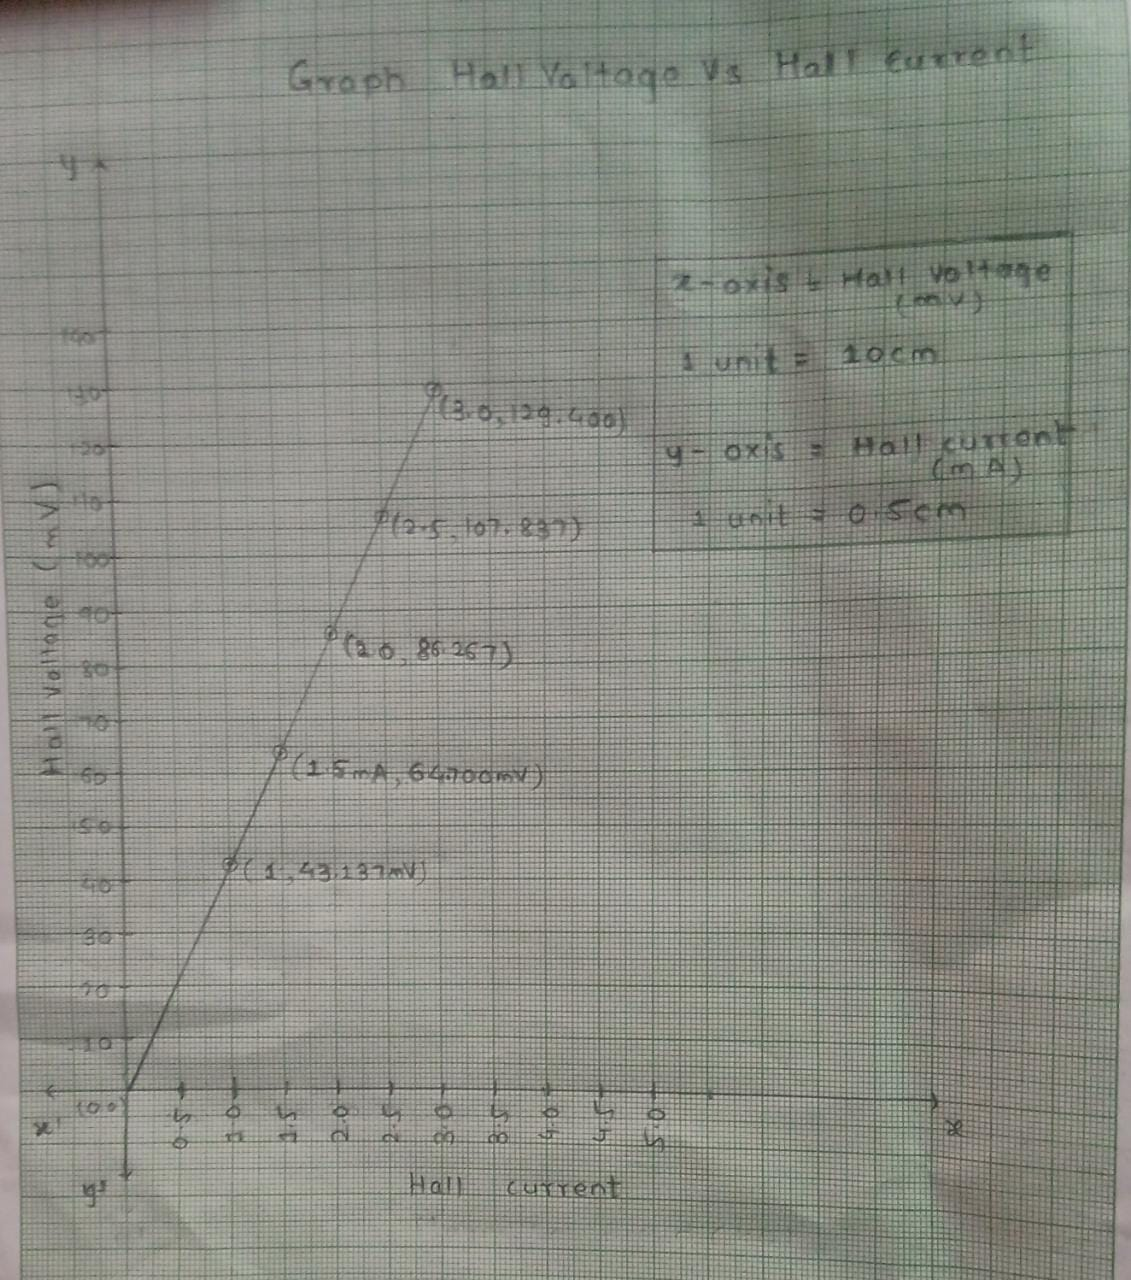 Graph Hall Voltage Vs Hall Current
y
x-axis = Hall voltage
(mv)
1 unit = 10cm
y-axis = Hall current
(mA)
1 unit = 0.5cm
140
130
120
110
100
90
80
70
60
50
40
30
20
10
Hall voltage (mV)
(3.0, 129.400)
(2.5, 107.837)
(2.0, 86.267)
(1.5mA, 64.700mv)
(1, 43.137mV)
(00)
0.5
1.0
1.5
2.0
2.5
3.0
3.5
4.0
4.5
5.0
x'
x
y'
Hall current